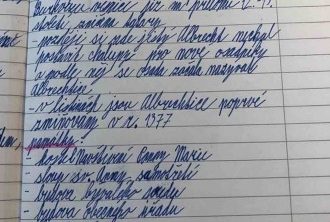 století, změna
- později si zde jistý Albrecht nechal
postavit chalupy pro nové osadníky
a podle něj se osada začala nazývat
Albrechtice
- v listinách jsou Albrechtice poprvé
zmiňovány v r. 1377
památky:
- kostel Navštívení Panny Marie
- sloup sv. Anny, samotřetí
- budova bývalého soudu
- budova obecného úřadu